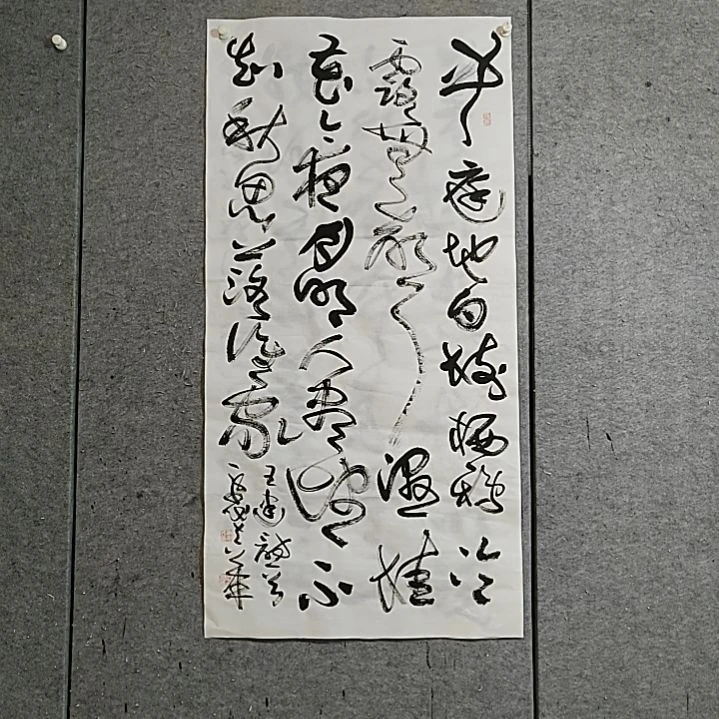 中庭地白樹栖鴉冷
露無聲濕桂
花今夜月明人盡望不
知秋思落誰家
王建詩